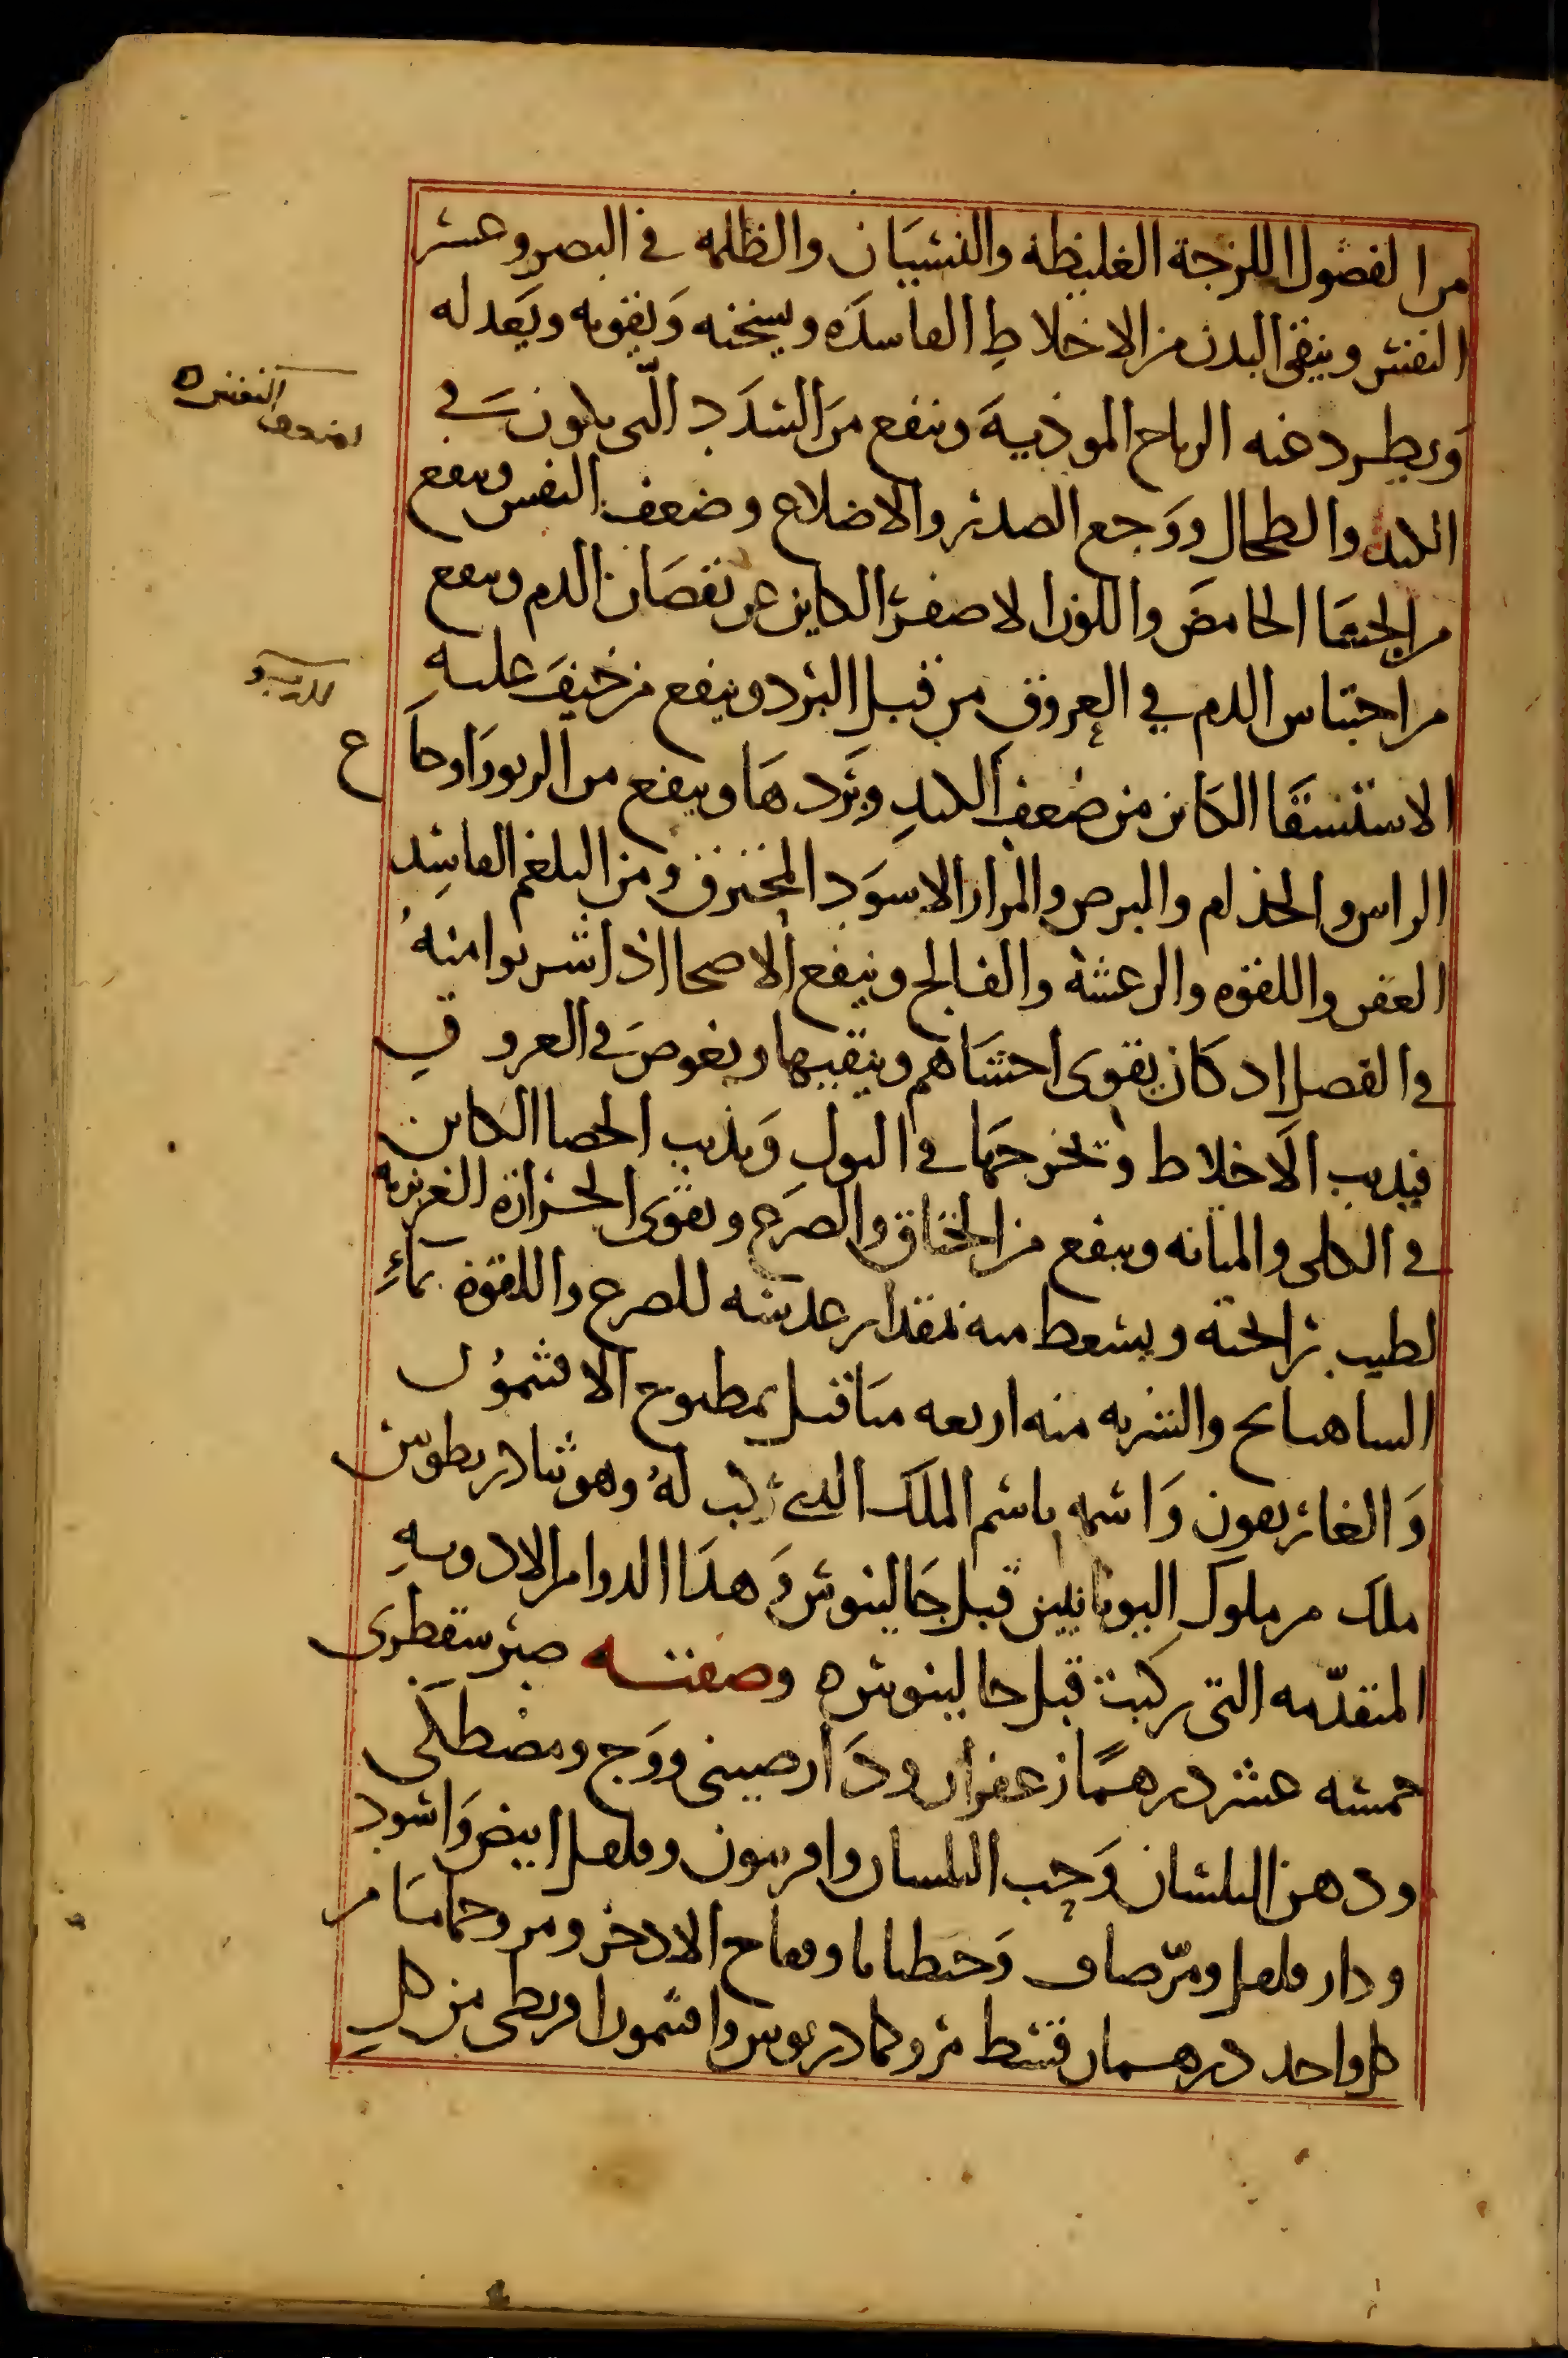 من الفضول اللزجة الغليظة والنسيان والظلمه في البصر وعسر
النفس وينقي البدن من الاخلاط الفاسده ويسخنه ويقويه ويعدله
ويطرد عنه الرياح الموذية وينفع من السدد التي يكون في
الكبد والطحال ووجع الصدر والاضلاع وضعف النفس وينفع
من الجشا الحامض واللون الاصفر الكاين عن نقصان الدم وينفع
من احتباس الدم في العروق من قبل البرد وينفع من خيف عليه
الاستسقا الكاين من ضعف الكبد وبردها وينفع من الربو واوجاع
الراس والجذام والبرص والمرار الاسود المحترق ومن البلغم الفاسد
العفن واللقوه والرعشة والفالج وينفع الاصحا اذا شربوا منه
في الفصل اد كان يقوى احشاهم وينقيها ويغوص في العروق
فيديب الاخلاط وتخرجها في البول ويذيب الحصا الكاين
في الكلى والمثانه وينفع من الخناق والصرع ويقوى الحرارة الغريزيه
لطيب رائحته ويسعط منه بمقدار عدسه للصرع واللقوة بماء
الساهبابج والشربه منه اربعه مثاقيل بمطبوخ الافثمون
والغاريقون واسمه باسم الملك الذي ركب له وهو ثيادريطوس
ملك من ملوك اليونانيين قبل جالينوس وهذا الدوا من الادويه
المتقدمه التي ركبت قبل جالينوس ه وصفته صبر سقطرى
خمسه عشر درهما زعفران ودارصيني ووج ومصطكى
ودهن البلسان وحب البلسان وافربيون وفلفل ابيض واسود
ودار فلفل ومر صاف وجنطيانا وفقاح الادخر ومر وحماما من
كل واحد درهمان قسط مر وكمادريوس وافثمون اقريطى من كل
لضعف النفس ه
للربو